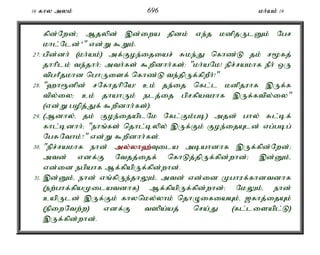 16 கால அலம் 696 மர்யம் 19
கின்றேன்; ஆதலின் இன்றைய தினம் எந்த மனிதருடனும் பேச
மாட்டேன்" என்று கூறும்.
27. பின்னர் (மர்யம்) அக்குழந்தையைச் சுமந்து கொண்டு தம் சமூகத்
தாரிடம் வந்தார்; அவர்கள் கூறினார்கள்: "மர்யமே! நிச்சயமாக நீர் ஒரு
விபரீதமான பொருளைக் கொண்டு வந்திருக்கிறீர்!"
28. "ஹாரூனின் சகோதரியே! உம் தந்தை கெட்ட மனிதராக இருக்க
வில்லை; உம் தாயாரும் நடத்தை பிசகியவராக இருக்கவில்லை"
(என்று பழித்துக் கூறினார்கள்).
29. (ஆனால், தம் குழந்தையிடமே கேட்கும்படி) அதன் பால் சுட்டிக்
காட்டினார்; "நாங்கள் தொட்டிலில் இருக்கும் குழந்தையுடன் எப்படிப்
பேசுவோம்!" என்று கூறினார்கள்.
30. "நிச்சயமாக நான் அல்லாஹ்வுடைய அடியானாக இருக்கின்றேன்;
அவன் எனக்கு வேதத்தைக் கொடுத்திருக்கின்றான்; இன்னும்,
என்னை நபியாக ஆக்கியிருக்கின்றான்.
31. இன்னும், நான் எங்கிருந்தாலும், அவன் என்னை முபாரக்கானவனாக
(நற்பாக்கியமுடையவனாக) ஆக்கியிருக்கின்றான்; மேலும், நான்
உயிருடன் இருக்கும் காலமெல்லாம் தொழுகையையும், ஜகாத்தையும்
(நிறைவேற்ற) எனக்கு வஸிய்யத் செய்து (கட்டளையிட்டு)
இருக்கின்றான்.